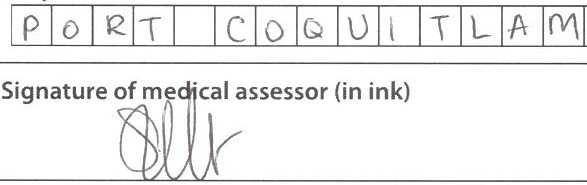 PORT COQUITLAM
Signature of medical assessor (in ink)